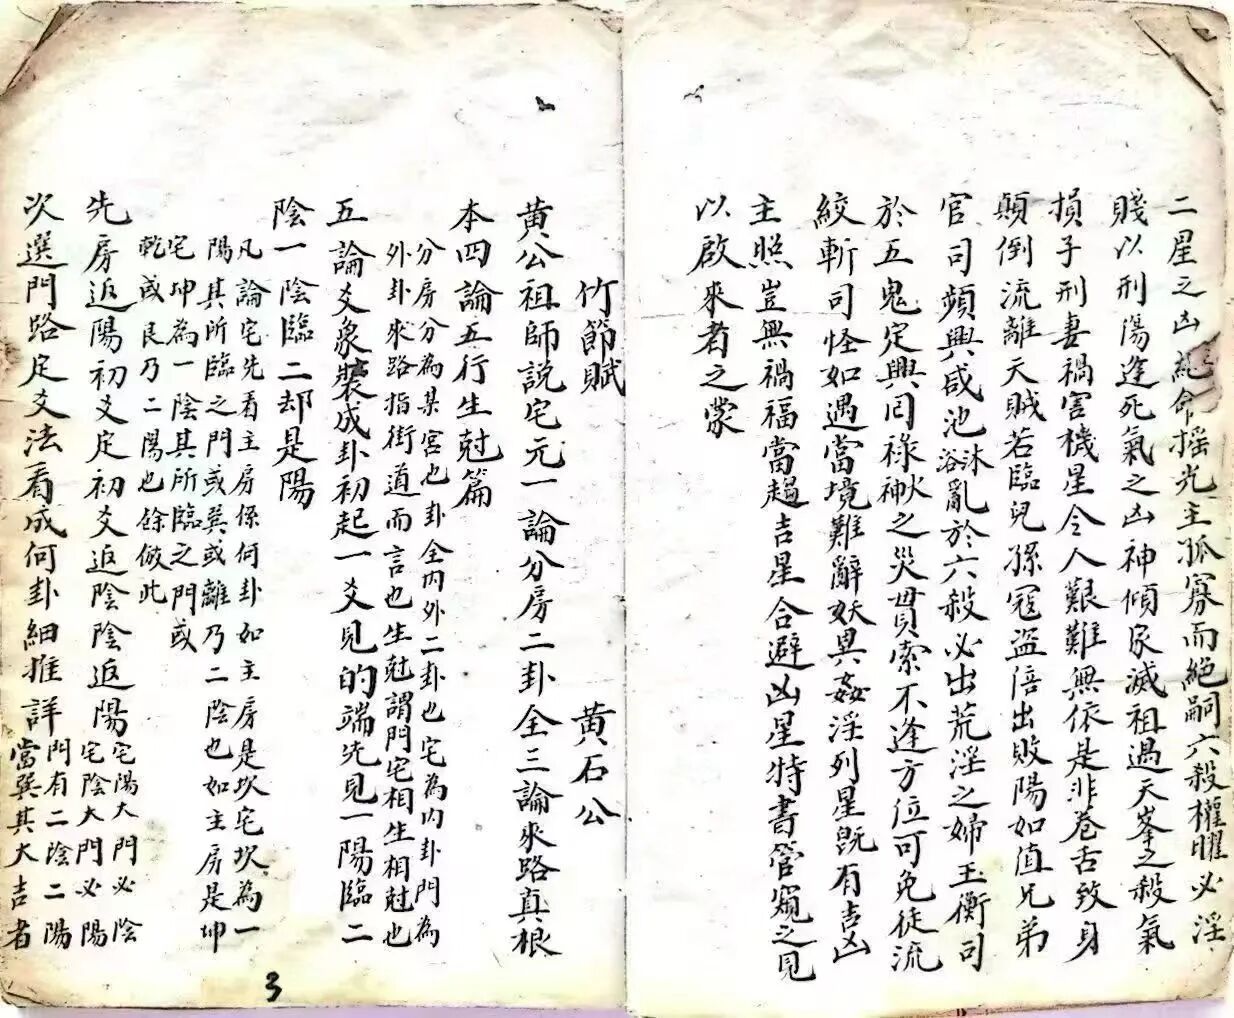 二星之凶絕命搖光主孤寡而絕嗣六殺權曜必淫
賤以刑傷逢死氣之凶神傾家滅祖遇天峯之殺氣
損子刑妻禍害機星令人艱難無依是非卷舌致身
顛倒流離天賊若臨兒孫冦盜倍出敗陽如值兄弟
官司頻興咸池沐浴亂於六殺必出荒淫之婦玉衡司
於五鬼定興囘祿火神之災貫索不逢方位可免徒流
絞斬司怪如遇當境難辭妖異姦淫列星既有吉凶
主照豈無禍福當趨吉星合避凶星特書管窺之見
以啟來者之蒙
竹節賦　黃石公
黃公祖師説宅元一論分房二卦全三論來路真根
本四論五行生尅篇
分房分為某宮也卦全內外二卦也宅為內卦門為
外卦來路指街道而言也生尅謂門宅相生相尅也
五論爻象裝成卦初起一爻見的端先見一陽臨二
陰一陰臨二却是陽
凡論宅先看主房係何卦如主房是坎宅坎為一
陽其所臨之門或巽或離乃二陰也如主房是坤
宅坤為一陰其所臨之門或
乾或艮乃二陽也餘倣此
先房返陽初爻定初爻返陰陰返陽宅陽大門必陰
宅陰大門必陽
次選門路定爻法看成何卦細推詳門有二陰二陽
當巽其大吉者
3